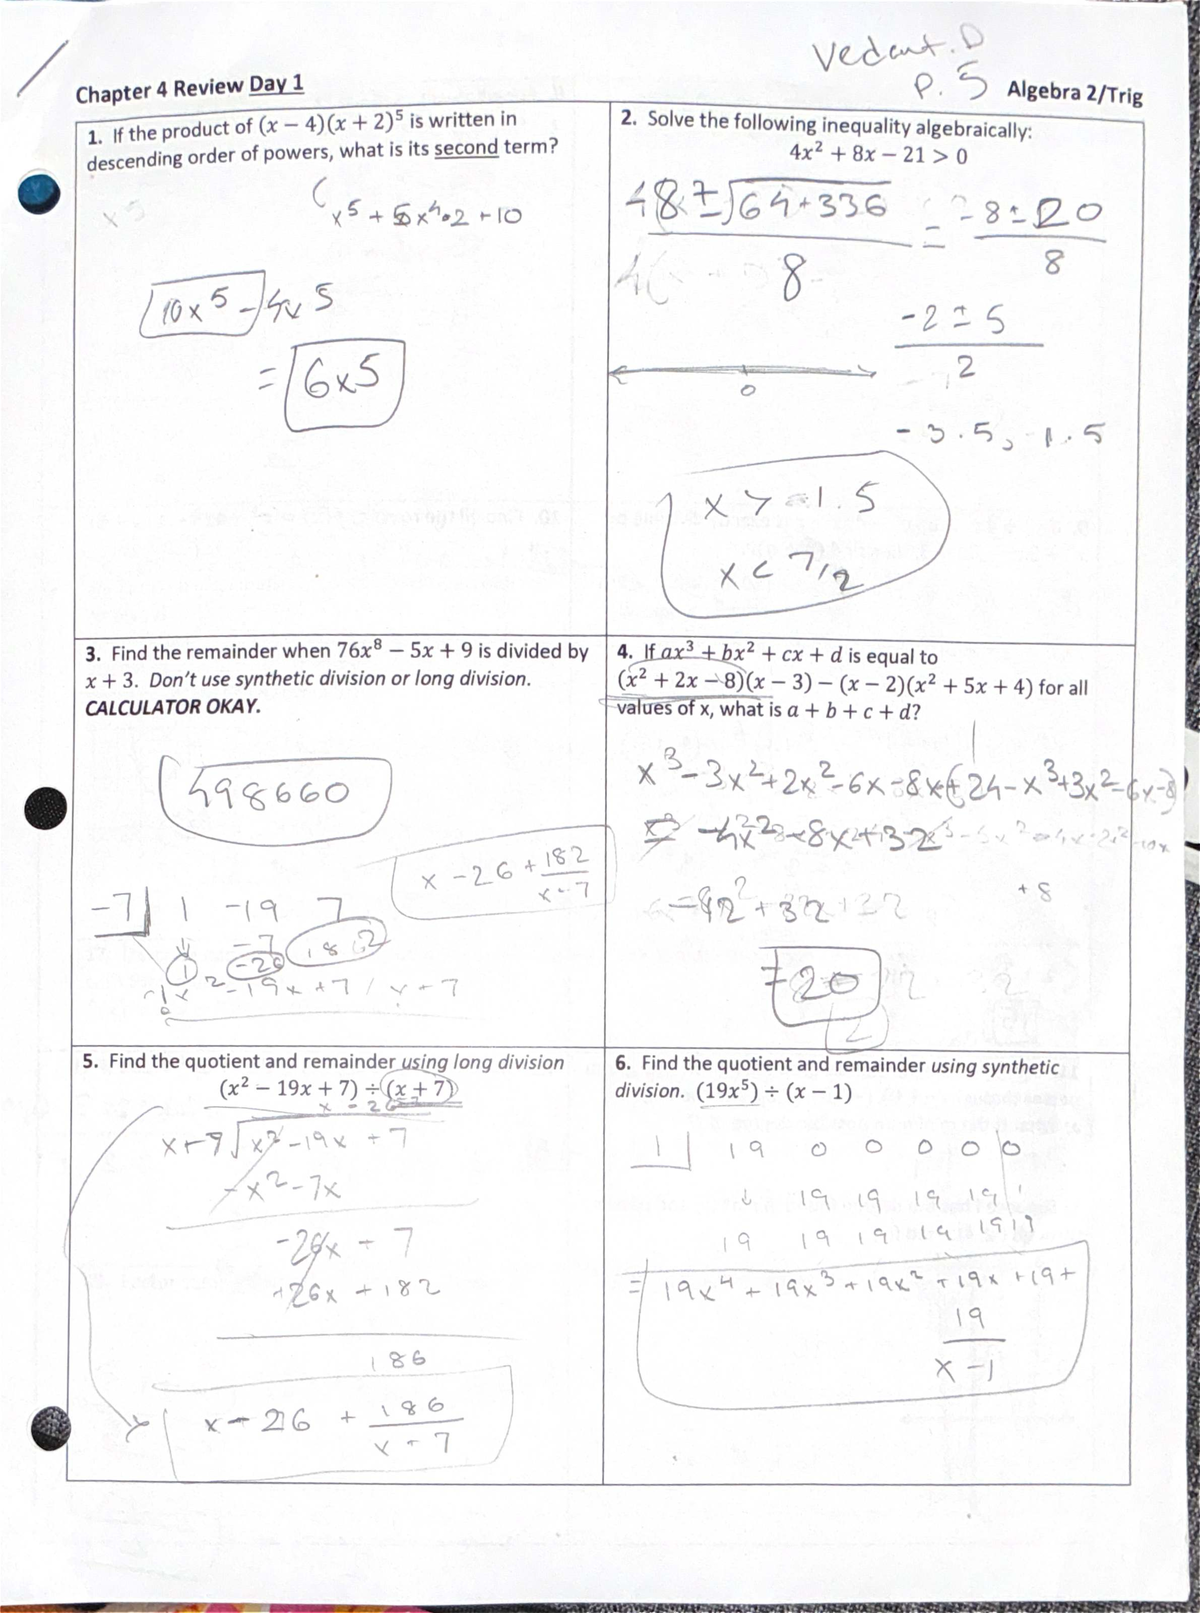 Vedant. D
P. 5
Chapter 4 Review Day 1
Algebra 2/Trig
1. If the product of (x – 4)(x + 2)⁵ is written in
descending order of powers, what is its second term?
x⁵ + 5x⁴•2 + 10
10x⁵ – 4x⁵
= 6x⁵
2. Solve the following inequality algebraically:
4x² + 8x – 21 > 0
√64+336
8
= -8 ± 20
8
-2 ± 5
2
0
- 3.5, 1.5
x > 1.5
x < 7/2
3. Find the remainder when 76x⁸ – 5x + 9 is divided by
x + 3. Don't use synthetic division or long division.
CALCULATOR OKAY.
498660
x - 26 + 182
x - 7
-7 1 -19 7
-7 182
1 -26
4. If ax³ + bx² + cx + d is equal to
(x² + 2x – 8)(x – 3) – (x – 2)(x² + 5x + 4) for all
values of x, what is a + b + c + d?
x³ - 3x² + 2x² - 6x - 8x + 24 - x³ + 3x² - 6x - 8
+ 8
= 20
2
5. Find the quotient and remainder using long division
(x² – 19x + 7) ÷ (x + 7)
x - 26
x + 7 √x² - 19x + 7
- x² - 7x
-26x + 7
+26x + 182
186
x - 26 + 186
x + 7
6. Find the quotient and remainder using synthetic
division. (19x⁵) ÷ (x – 1)
1 19 0 0 0 0 0
↓ 19 19 19 19
19 19 19 19 19
= 19x⁴ + 19x³ + 19x² + 19x + 19 +
19
x - 1